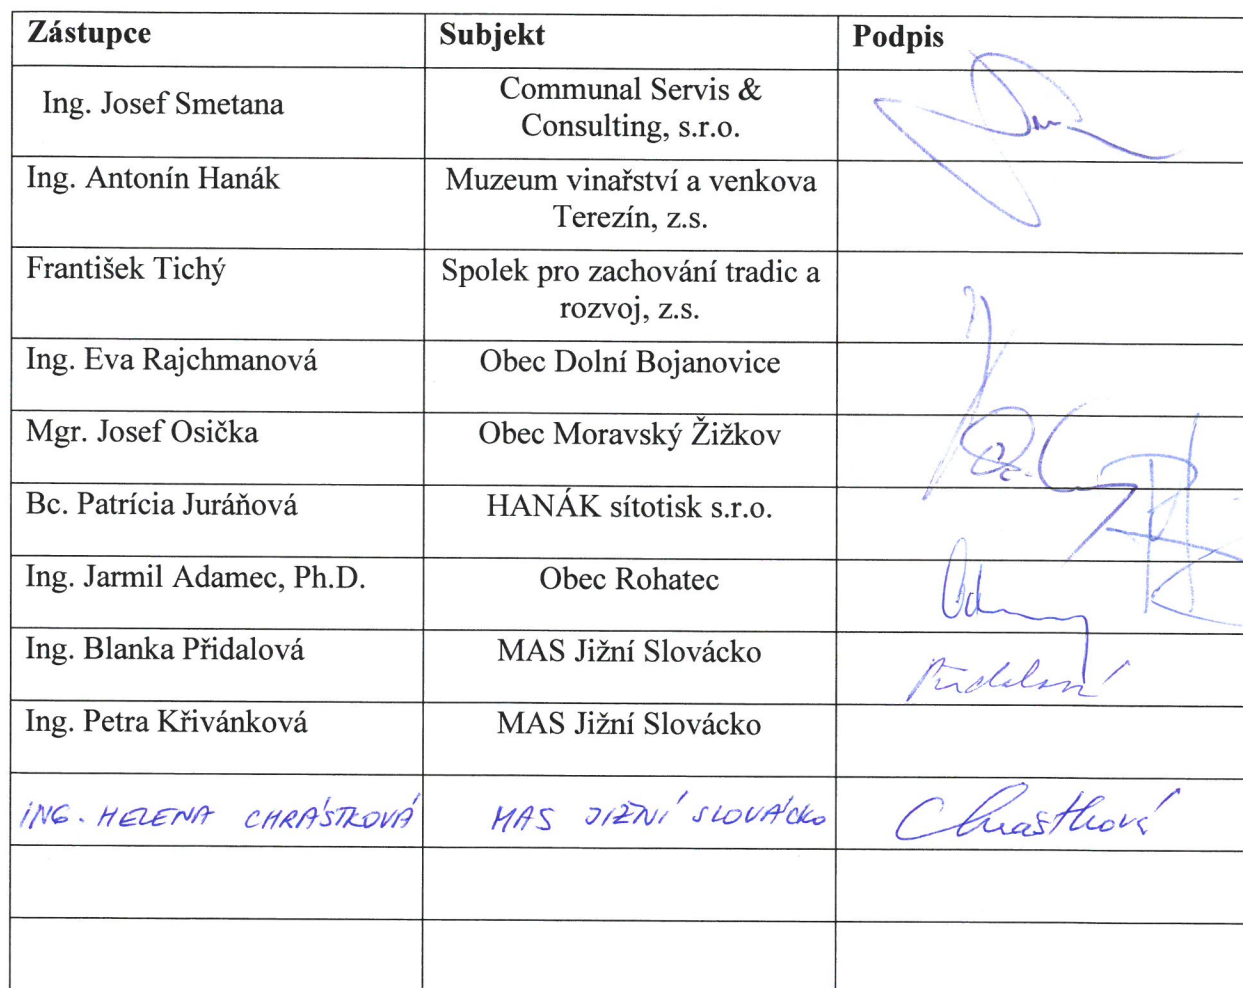 Zástupce Subjekt Podpis
Ing. Josef Smetana Communal Servis &
Consulting, s.r.o.
Ing. Antonín Hanák Muzeum vinařství a venkova
Terezín, z.s.
František Tichý Spolek pro zachování tradic a
rozvoj, z.s.
Ing. Eva Rajchmanová Obec Dolní Bojanovice
Mgr. Josef Osička Obec Moravský Žižkov
Bc. Patrícia Juráňová HANÁK sítotisk s.r.o.
Ing. Jarmil Adamec, Ph.D. Obec Rohatec
Ing. Blanka Přidalová MAS Jižní Slovácko Přidalová
Ing. Petra Křivánková MAS Jižní Slovácko
ING. HELENA CHRÁSTKOVÁ MAS JIŽNÍ SLOVÁCKO Chrástková